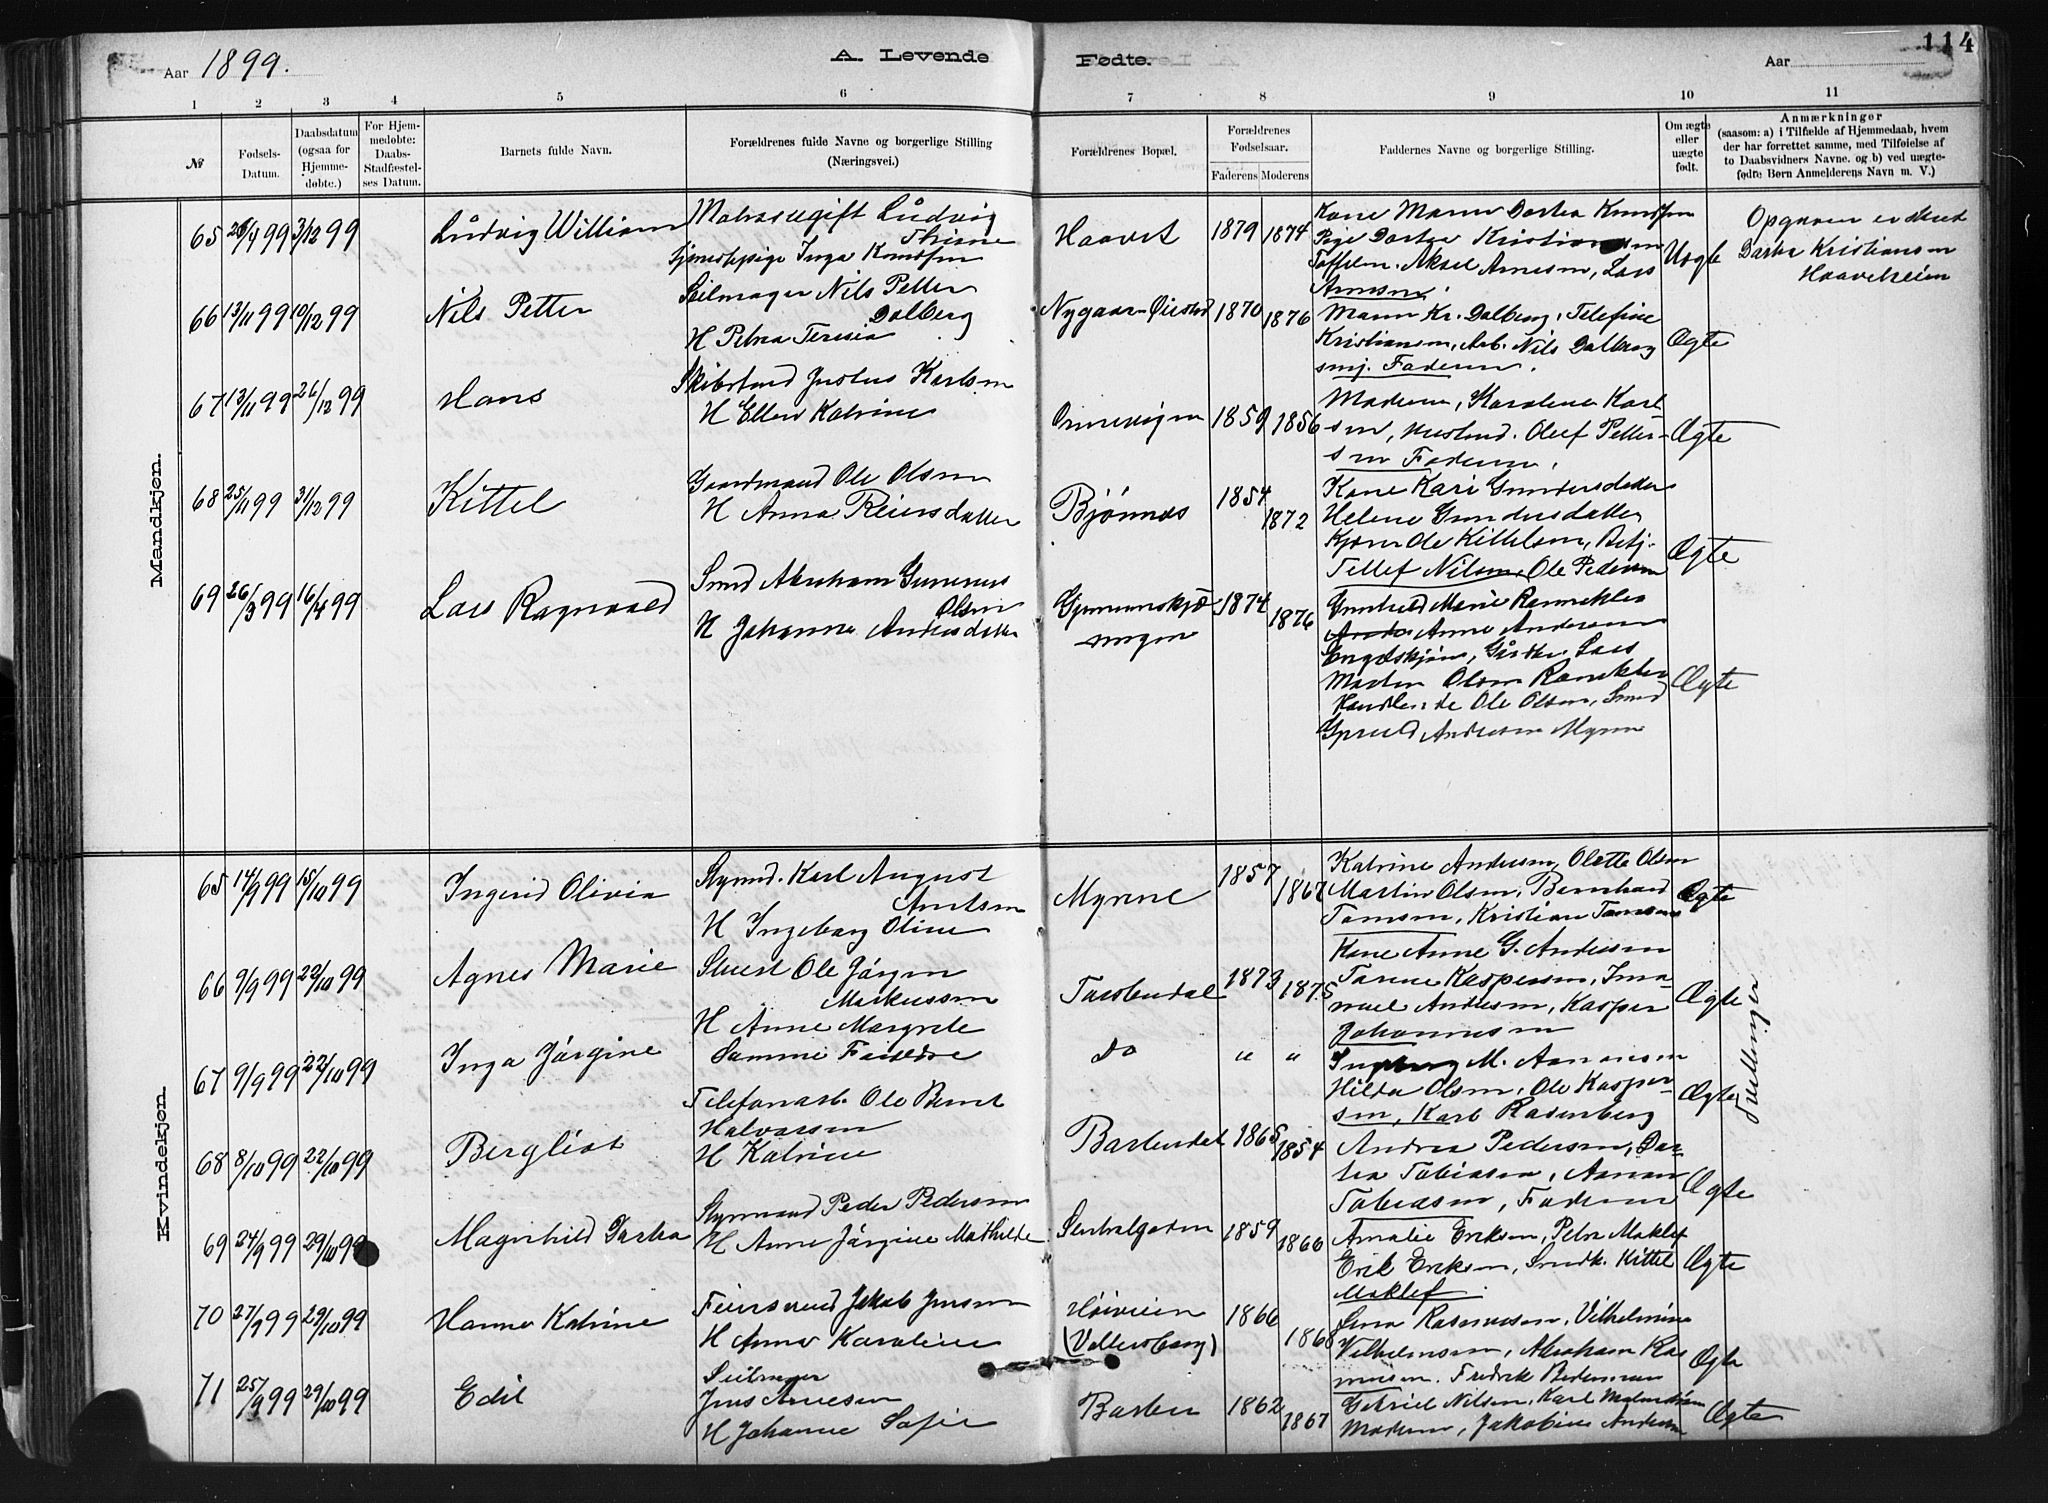 114
Aar 1899.
A. Levende
Fødte.
Aar
1 2 3 4 5 6 7 8 9 10 11
№
Fødsels-
Datum.
Daabsdatum
(ogsaa for
Hjemme-
døbte.)
For Hjem-
medøbte:
Daabs-
Stadfæstel-
ses Datum.
Barnets fulde Navn.
Forældrenes fulde Navne og borgerlige Stilling
(Næringsvei.)
Forældrenes Bopæl.
Forældrenes
Fødselsaar.
Faderens Moderens
Faddernes Navne og borgerlige Stilling.
Om ægte
eller
uægte
født.
Anmærkninger
(saasom: a) i Tilfælde af Hjemmedaab, hvem
der har forrettet samme, med Tilføielse af
to Daabsvidners Navne. og b) ved uægte-
fødte Børn Anmelderens Navn m. V.)
Mandkjøn.
65 26/4 99 3/12 99
Ludvig William
Matros ugift Ludvig
Thime
Tjenestepige Inga Knudsen
Haavet
1879 1874
Kone Maren Dortea Knudsen
Pige Dortea Kristiansen
Aksel Arnesen, Lars
Arnesen.
Uægte
Opgaven er
Dortea Kristiansen
Haaveheien
66 13/11 99 10/12 99
Nils Petter
Seilmager Nils Petter
Dalberg
H Petra Teresia
Nygaar-Øiestad
1870 1876
Maren Kr. Dalberg, Telefine
Kristiansen, Arb. Nils Dalberg
smj. Faderen.
Ægte
67 13/11 99 26/12 99
Hans
Skibstmd Justus Karlsen
H Ellen Katrine
Omrevigen
1859 1856
Moderen, Karolene Karl-
sen, Oluf Petter-
sen Faderen.
Ægte
68 25/11 99 31/12 99
Kittel
Gaardmand Ole Olsen
H Anna Reiersdatter
Bjønnes
1854 1872
Kone Kari Gundersdatter
Helene Gundersdatter
Ole Kittelsen,
Tellef Nilsen, Ole Pedersen
Ægte
69 26/3 99 16/4 99
Lars Ragnvald
Smed Abraham Gunerius
Olsen
H Johanne Andersdatter
1874 1876
Gunhild Marie Rannekleo
Anne Andersen
Engelskjøn, Lars
Martin Olsen Rannekleo
Handlende Ole Olsen, Smed
Andersen Myren
Ægte
Kvindekjøn.
65 14/9 99 15/10 99
Ingrid Olivia
Styrmd. Karl August
Arntsen
H Ingeborg Oline
Myrene
1857 1867
Katrine Andersen, Olette Olsen
Martin Olsen, Bernhard
Tomsen, Kristian Tomsen
Ægte
66 9/9 99 22/10 99
Agnes Marie
Stuert Ole Jørgen
Markussen
H Anne Margrete
Torsbudal
1873 1875
Kone Anne G. Andersen
Tarine Kaspersen, Ima-
nuel Andersen, Kasper
Johannessen
Ægte
Tvillinger
67 9/9 99 22/10 99
Inga Jørgine
Samme Forældre
do
" "
Ingeborg M. Aanonsen
Hilda Olsen, Ole Kasper-
sen, Karl Rosenberg
Ægte
68 8/10 99 22/10 99
Bergliot
Telefonarb. Ole Bernt
Halvorsen
H Katrine
Barbudal
1865 1854
Andrea Pedersen, Dor-
tea Tobiasen, Aanon
Tobiasen, Faderen
Ægte
69 24/9 99 29/10 99
Magnhild Dortea
Styrmand Peder Pedersen
H Anne Jørgine Mathilde
Sentralgaden
1859 1866
Amalie Eriksen, Petra Moklef
Erik Eriksen, Smedk. Kittel
Moklef.
Ægte
70 27/9 99 29/10 99
Hanna Katrine
Feiersvend Jakob Jensen
H Anna Karoline
Høiveien
(Vollersborg)
1866 1868
Lena Rasmussen, Vilhelmine
Vilhelmsen, Abraham Ras
mussen. Fredrik Pedersen
Ægte
71 25/9 99 29/10 99
Edit
Seilmager
Jens Arnesen
H Johanne Sofie
Barbu
1862 1867
Gabriel Nilsen, Karl
Moderen, Jakobine Andersen
Ægte